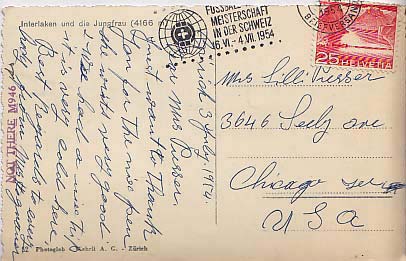 Interlaken und die Jungfrau (4166
FUSSBALL
MEISTERSCHAFT
IN DER SCHWEIZ
16.VI.-4.VII.1954
25
HELVETIA
NOT THERE M946
3 July 1954.
Mrs
Just want to thank
you for the nice pen
she writes very good
We had a nice trip
it is very cold here
Best regards to every
body
Mrs Lilli
3646 Seely ave
Chicago
USA
Photoglob Wehrli A. G. - Zürich